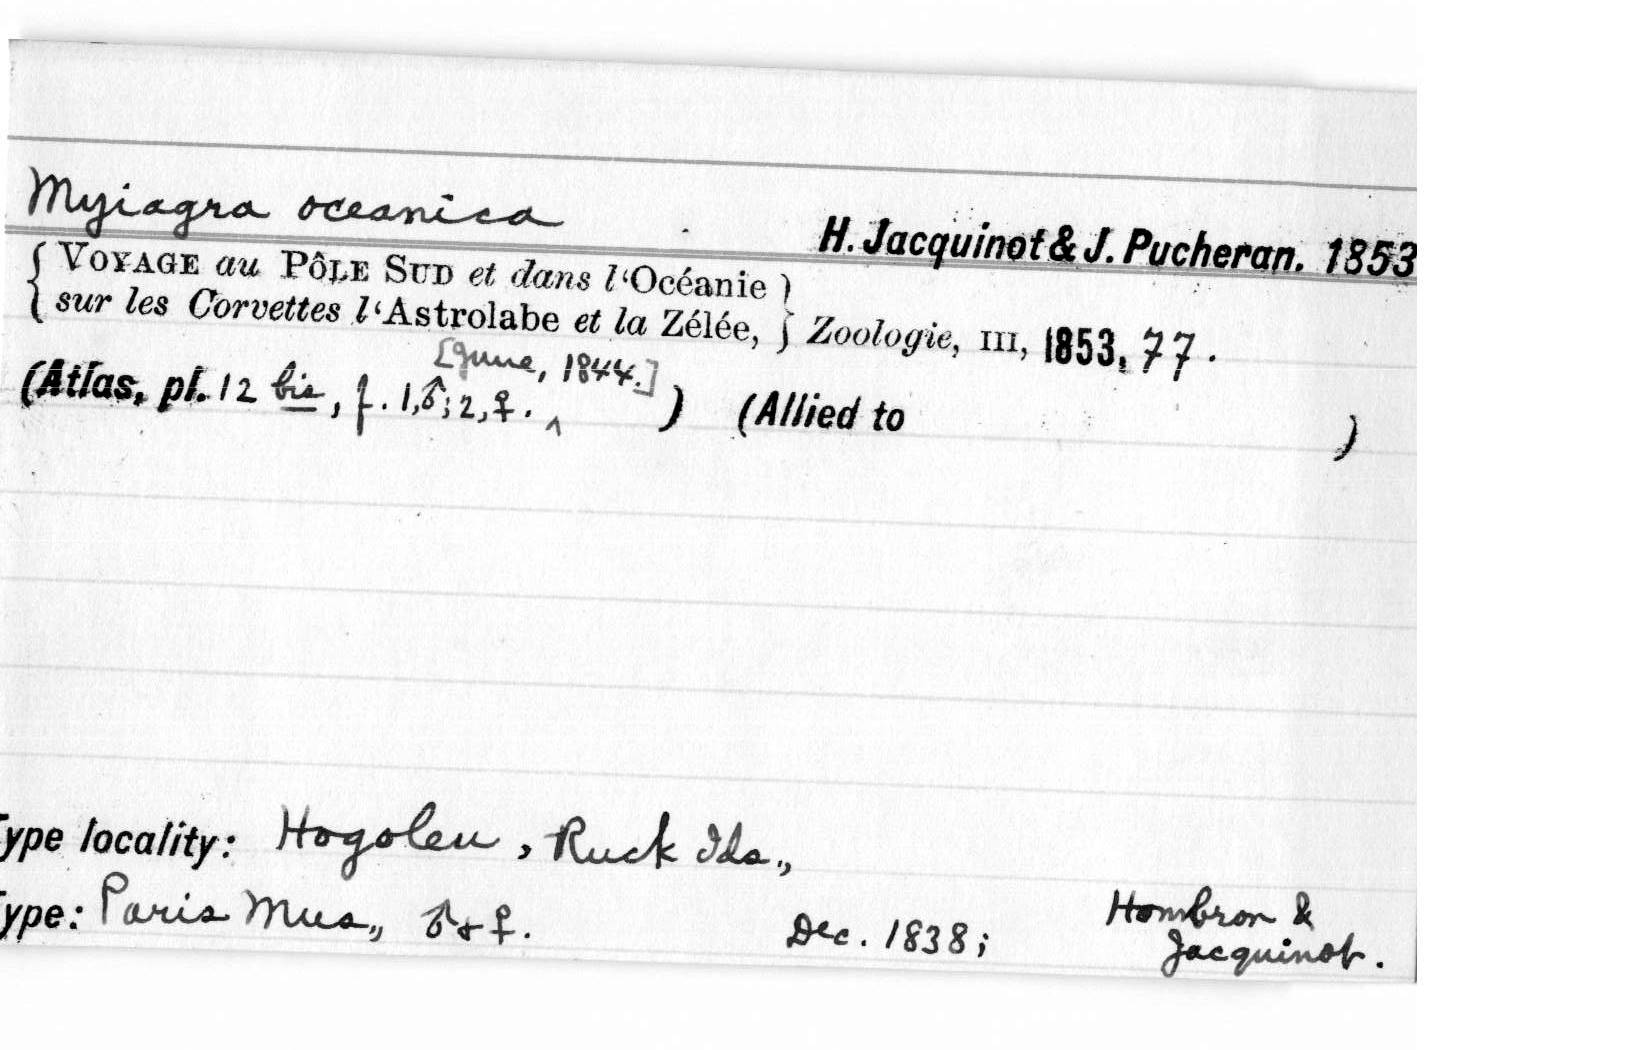 Myiagra oceanica
H. Jacquinot & J. Pucheran. 1853
{ VOYAGE au PÔLE SUD et dans l‘Océanie }
{ sur les Corvettes l‘Astrolabe et la Zélée, } Zoologie, III, 1853, 77.
[June, 1844.]
(Atlas, pl. 12 bis, f. 1, ♂; 2, ♀. ^ ) (Allied to )
Type locality: Hogoleu, Ruck Ids.,
Type: Paris Mus., ♂ & ♀. Dec. 1838; Hombron &
Jacquinot.